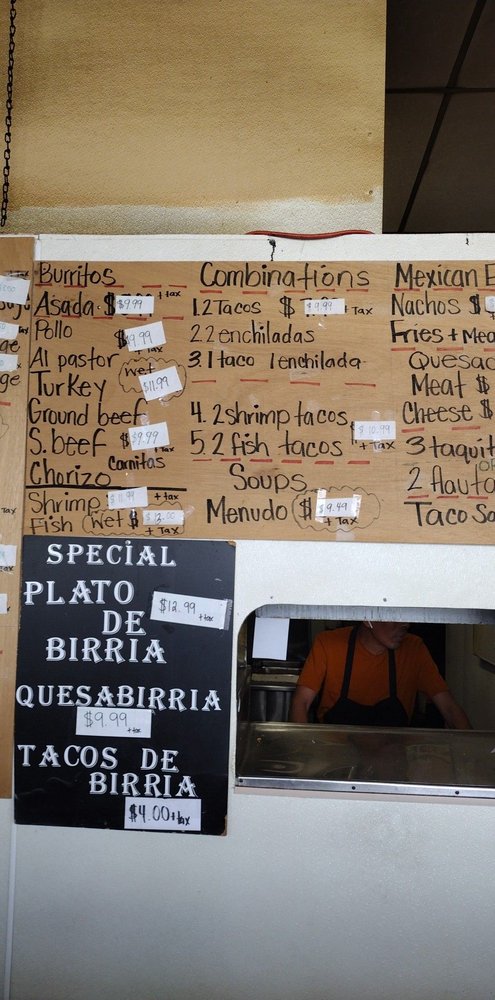 Burritos
Asada $ $9.99 + tax
Pollo $9.99 + Tax
Al pastor Wet $11.99
Turkey
Ground beef
S. beef $ $9.99 + Tax
Carnitas
Chorizo
Shrimp $11.99 + tax
Fish (Wet $ + Tax
Combinations
1. 2 Tacos $ $9.99 + Tax
2. 2 enchiladas
3. 1 taco 1 enchilada
4. 2 shrimp tacos
$10.99 + Tax
5. 2 fish tacos
Soups
Menudo $ $9.49 + Tax
Mexican E
Nachos $
Fries + Mea
Quesad
Meat $
Cheese $
3 taquit
or
2 flauta
Taco Sa
SPECIAL
PLATO
$12.99 + tax
DE
BIRRIA
QUESABIRRIA
$9.99 + tax
TACOS DE
BIRRIA
$4.00 + tax